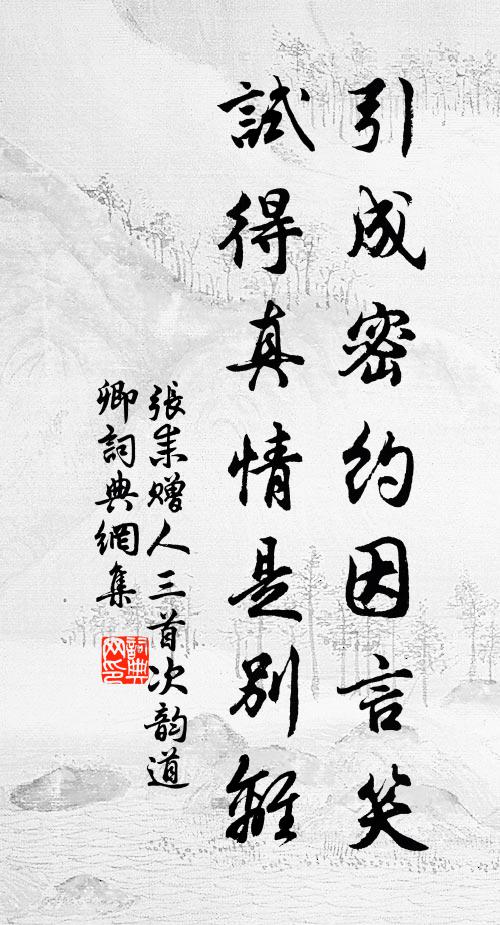 引成密约因言笑
試得真情是别離
張耒赠人三首次韵道
卿詞典網集
詞典